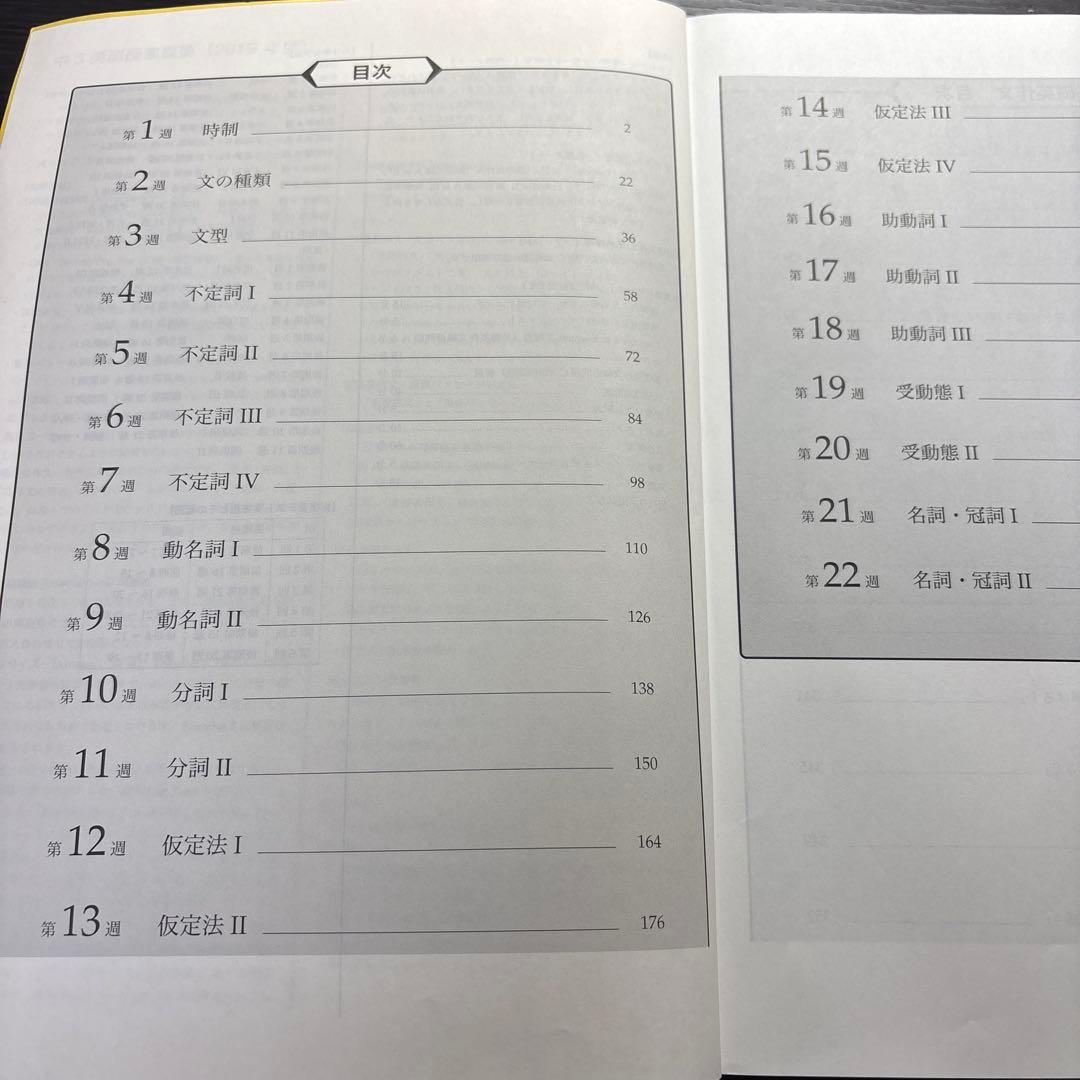 目次
第1週 時制 2
第2週 文の種類 22
第3週 文型 36
第4週 不定詞 I 58
第5週 不定詞 II 72
第6週 不定詞 III 84
第7週 不定詞 IV 98
第8週 動名詞 I 110
第9週 動名詞 II 126
第10週 分詞 I 138
第11週 分詞 II 150
第12週 仮定法 I 164
第13週 仮定法 II 176
第14週 仮定法 III
第15週 仮定法 IV
第16週 助動詞 I
第17週 助動詞 II
第18週 助動詞 III
第19週 受動態 I
第20週 受動態 II
第21週 名詞・冠詞 I
第22週 名詞・冠詞 II